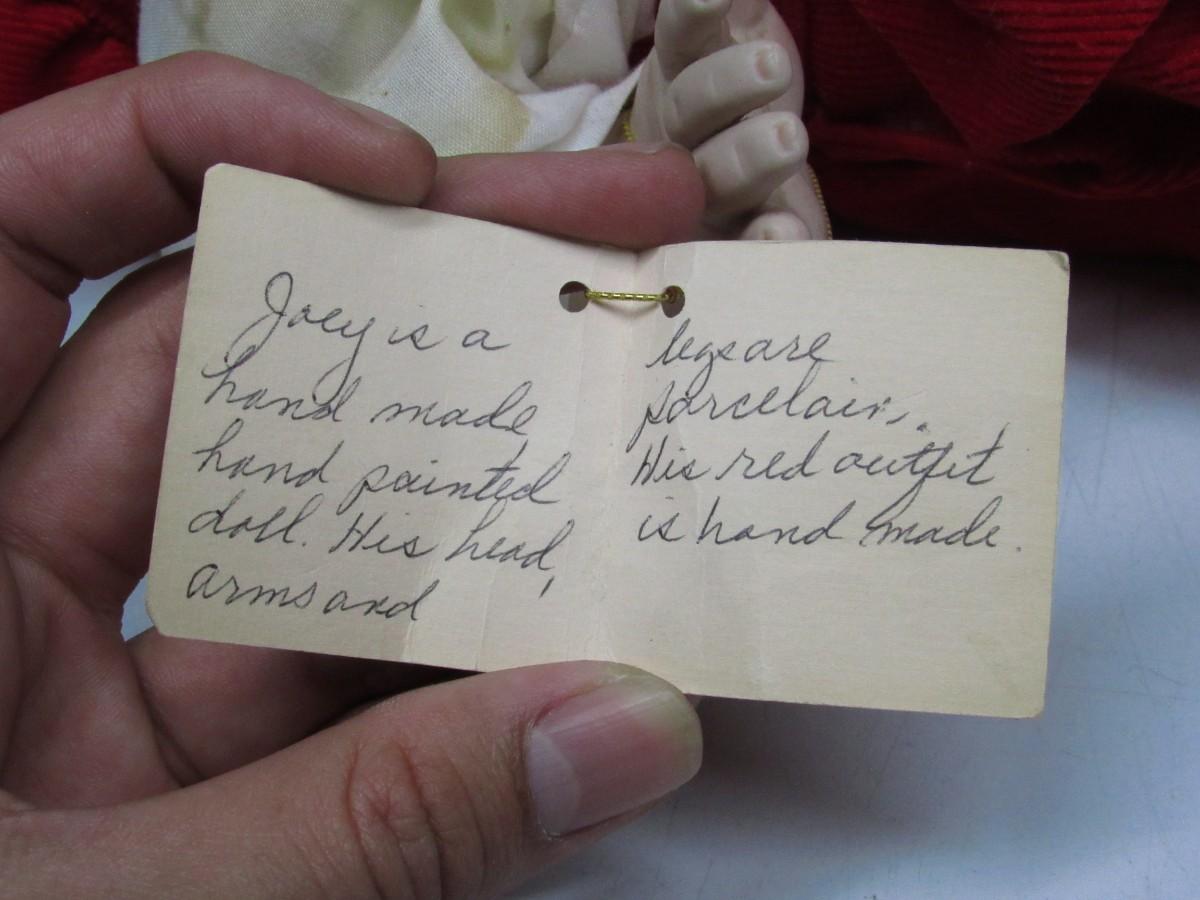 Joey is a
hand made
hand painted
doll. His head,
arms and
legs are
porcelain.
His red outfit
is hand made.